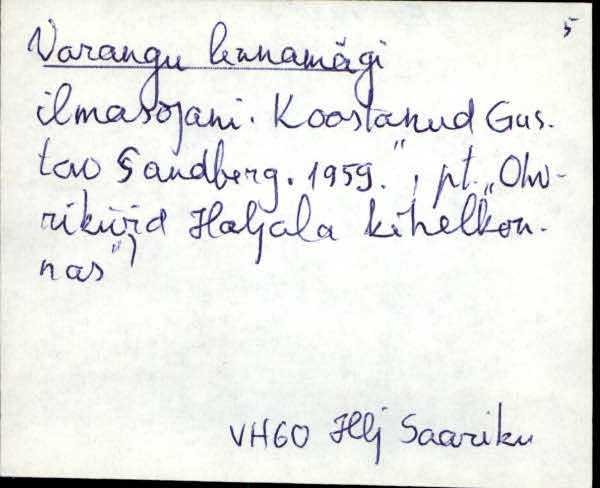 5
Varangu linnamägi
ilmasõjani. Koostanud Gus-
tav Sandberg. 1959.", pt. „Ohv-
rikivid Haljala kihelkon-
nas")
VH60 Hlj Saariku